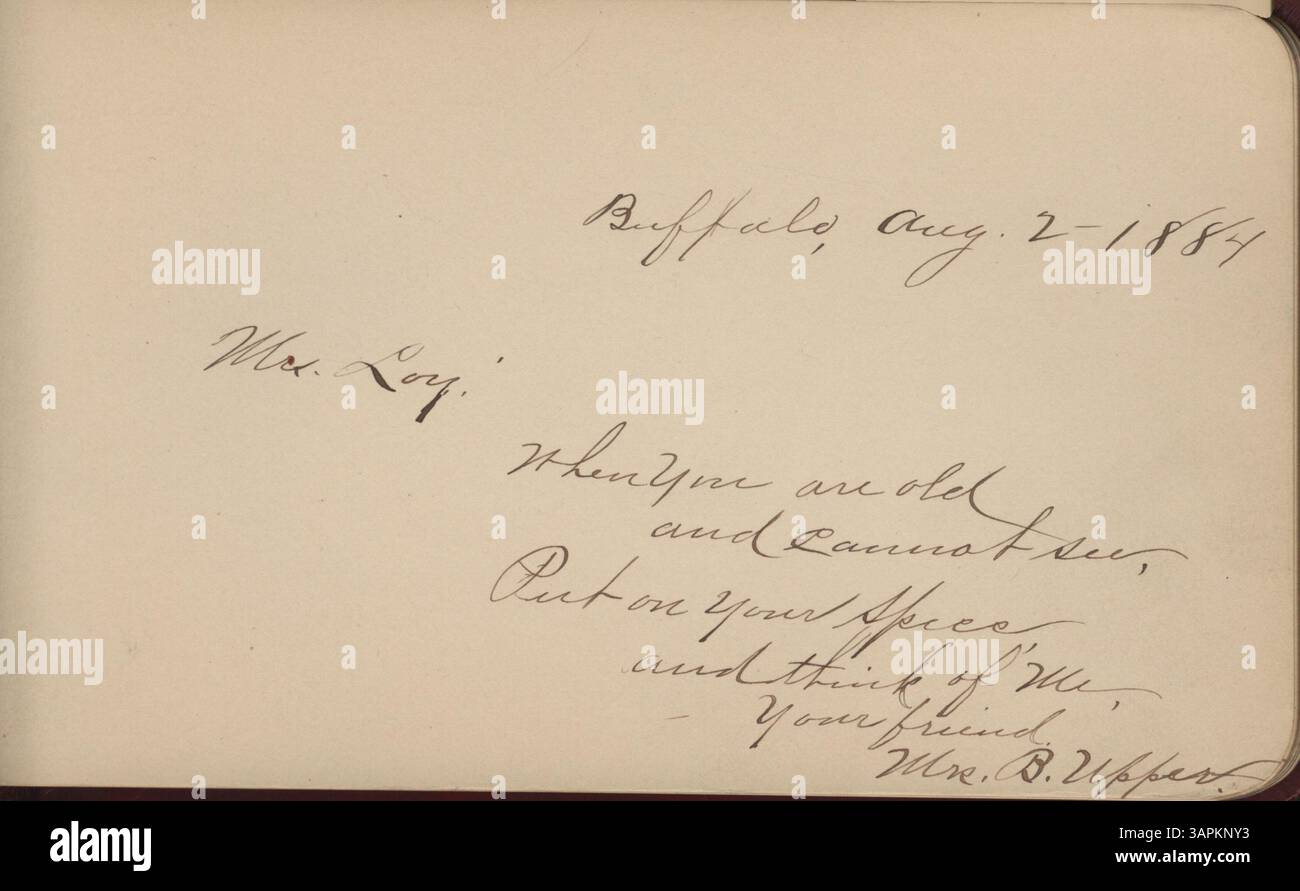 Buffalo, Aug. 2 - 1884
Mrs. Loy.
When you are old
and cannot see,
Put on your specs
and think of Me,
Your friend.
Mrs. B. Upper.
alamy
alamy
alamy
alamy
alamy
alamy
Image ID: 3APKNY3
www.alamy.com